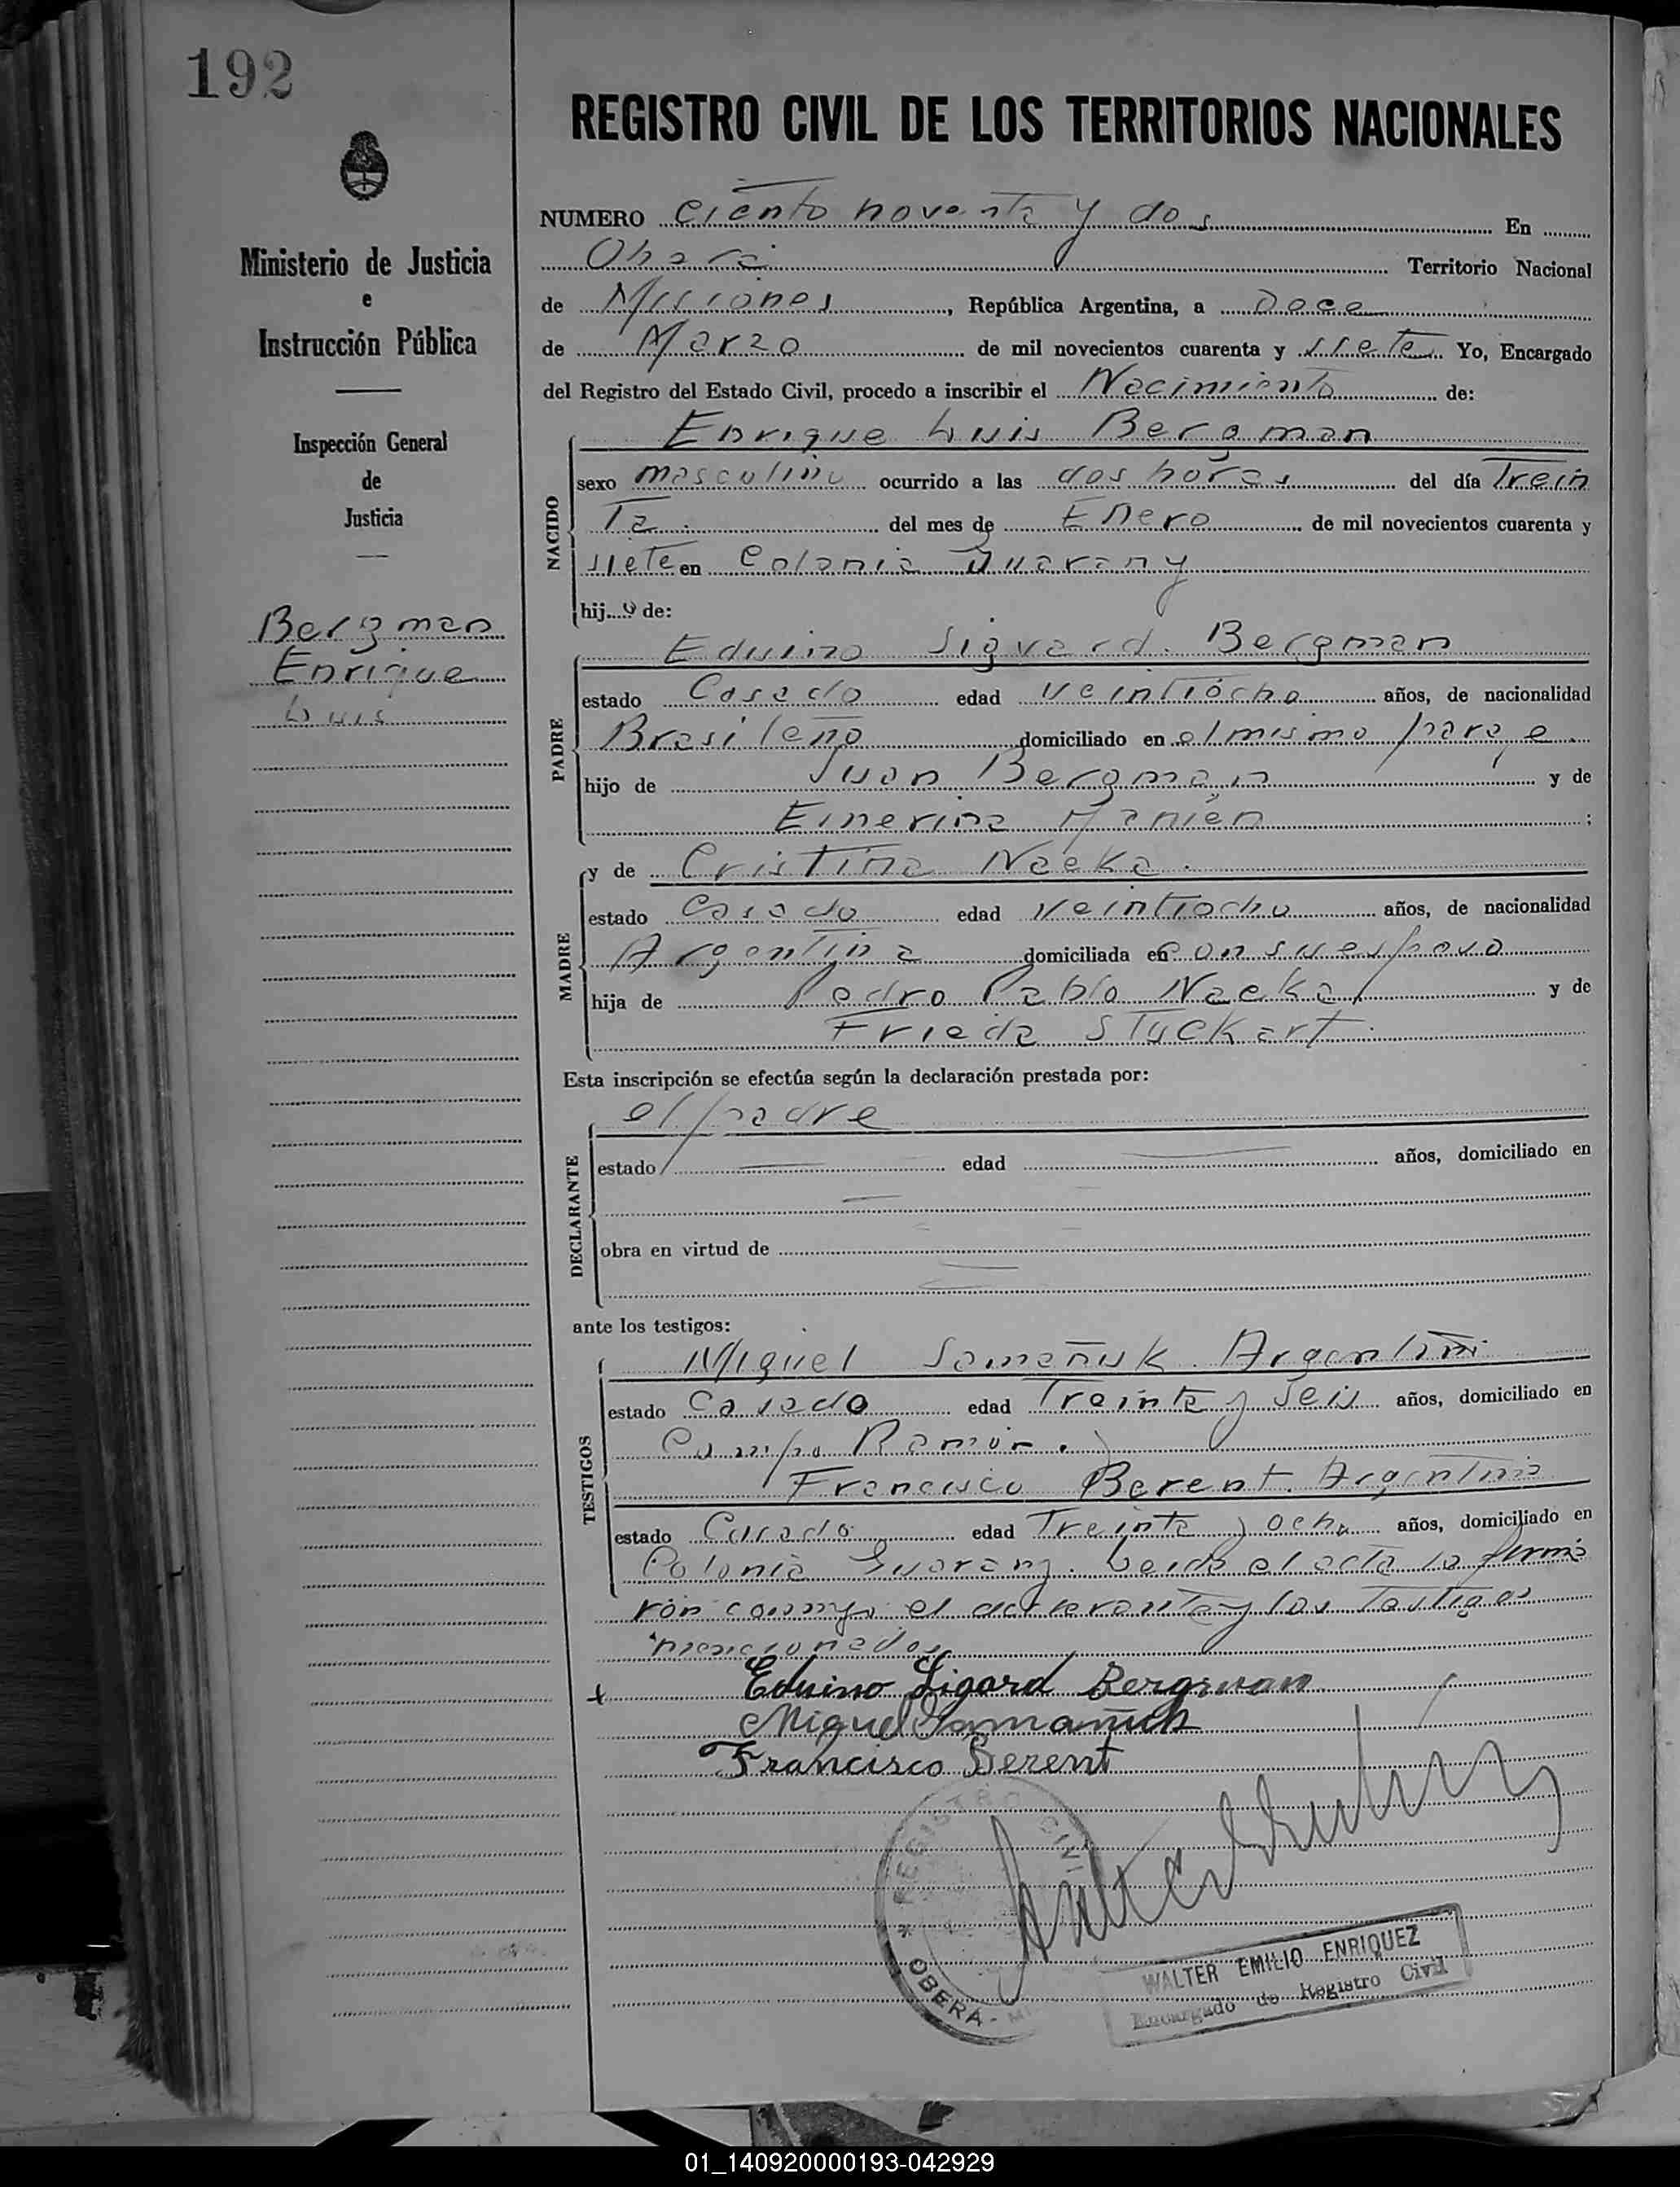 192
Ministerio de Justicia
e
Instrucción Pública
Inspección General
de
Justicia
Bergman
Enrique
Luis
REGISTRO CIVIL DE LOS TERRITORIOS NACIONALES
NUMERO ciento noventa y dos En
Oberá Territorio Nacional
de Misiones, República Argentina, a Doce
de Marzo de mil novecientos cuarenta y siete Yo, Encargado
del Registro del Estado Civil, procedo a inscribir el Nacimiento de:
NACIDO
Enrique Luis Bergman
sexo masculino ocurrido a las dos horas del día Trein
Ta. del mes de Enero de mil novecientos cuarenta y
siete en Colonia Guarany
hijo de:
PADRE
Eduino Sigvard. Bergman
estado Casado edad veintiocho años, de nacionalidad
Brasileño domiciliado en el mismo paraje.
hijo de Juan Bergman y de
Einerina Manién;
MADRE
y de Cristina Naeka.
estado Casado edad veintiocho años, de nacionalidad
Argentina domiciliada en con su esposo
hija de Pedro Pablo Naeka y de
Frieda Stuckart.
Esta inscripción se efectúa según la declaración prestada por:
DECLARANTE
el padre
estado edad años, domiciliado en
obra en virtud de
ante los testigos:
TESTIGOS
Miguel Samañuk. Argentino
estado Casado edad Treinta y seis años, domiciliado en
Campo Ramón.
Francisco Berent. Argentino
estado Casado edad Treinta y ocho años, domiciliado en
Colonia Guarany. Leida el acta la firma
ron conmigo el declarante y los Testigos
mencionados
Eduino Sigard Bergman
Miguel Samañuk
Francisco Berent
REGISTRO CIVIL
* OBERÁ -
WALTER EMILIO ENRIQUEZ
Encargado de Registro Civil
01_140920000193-042929